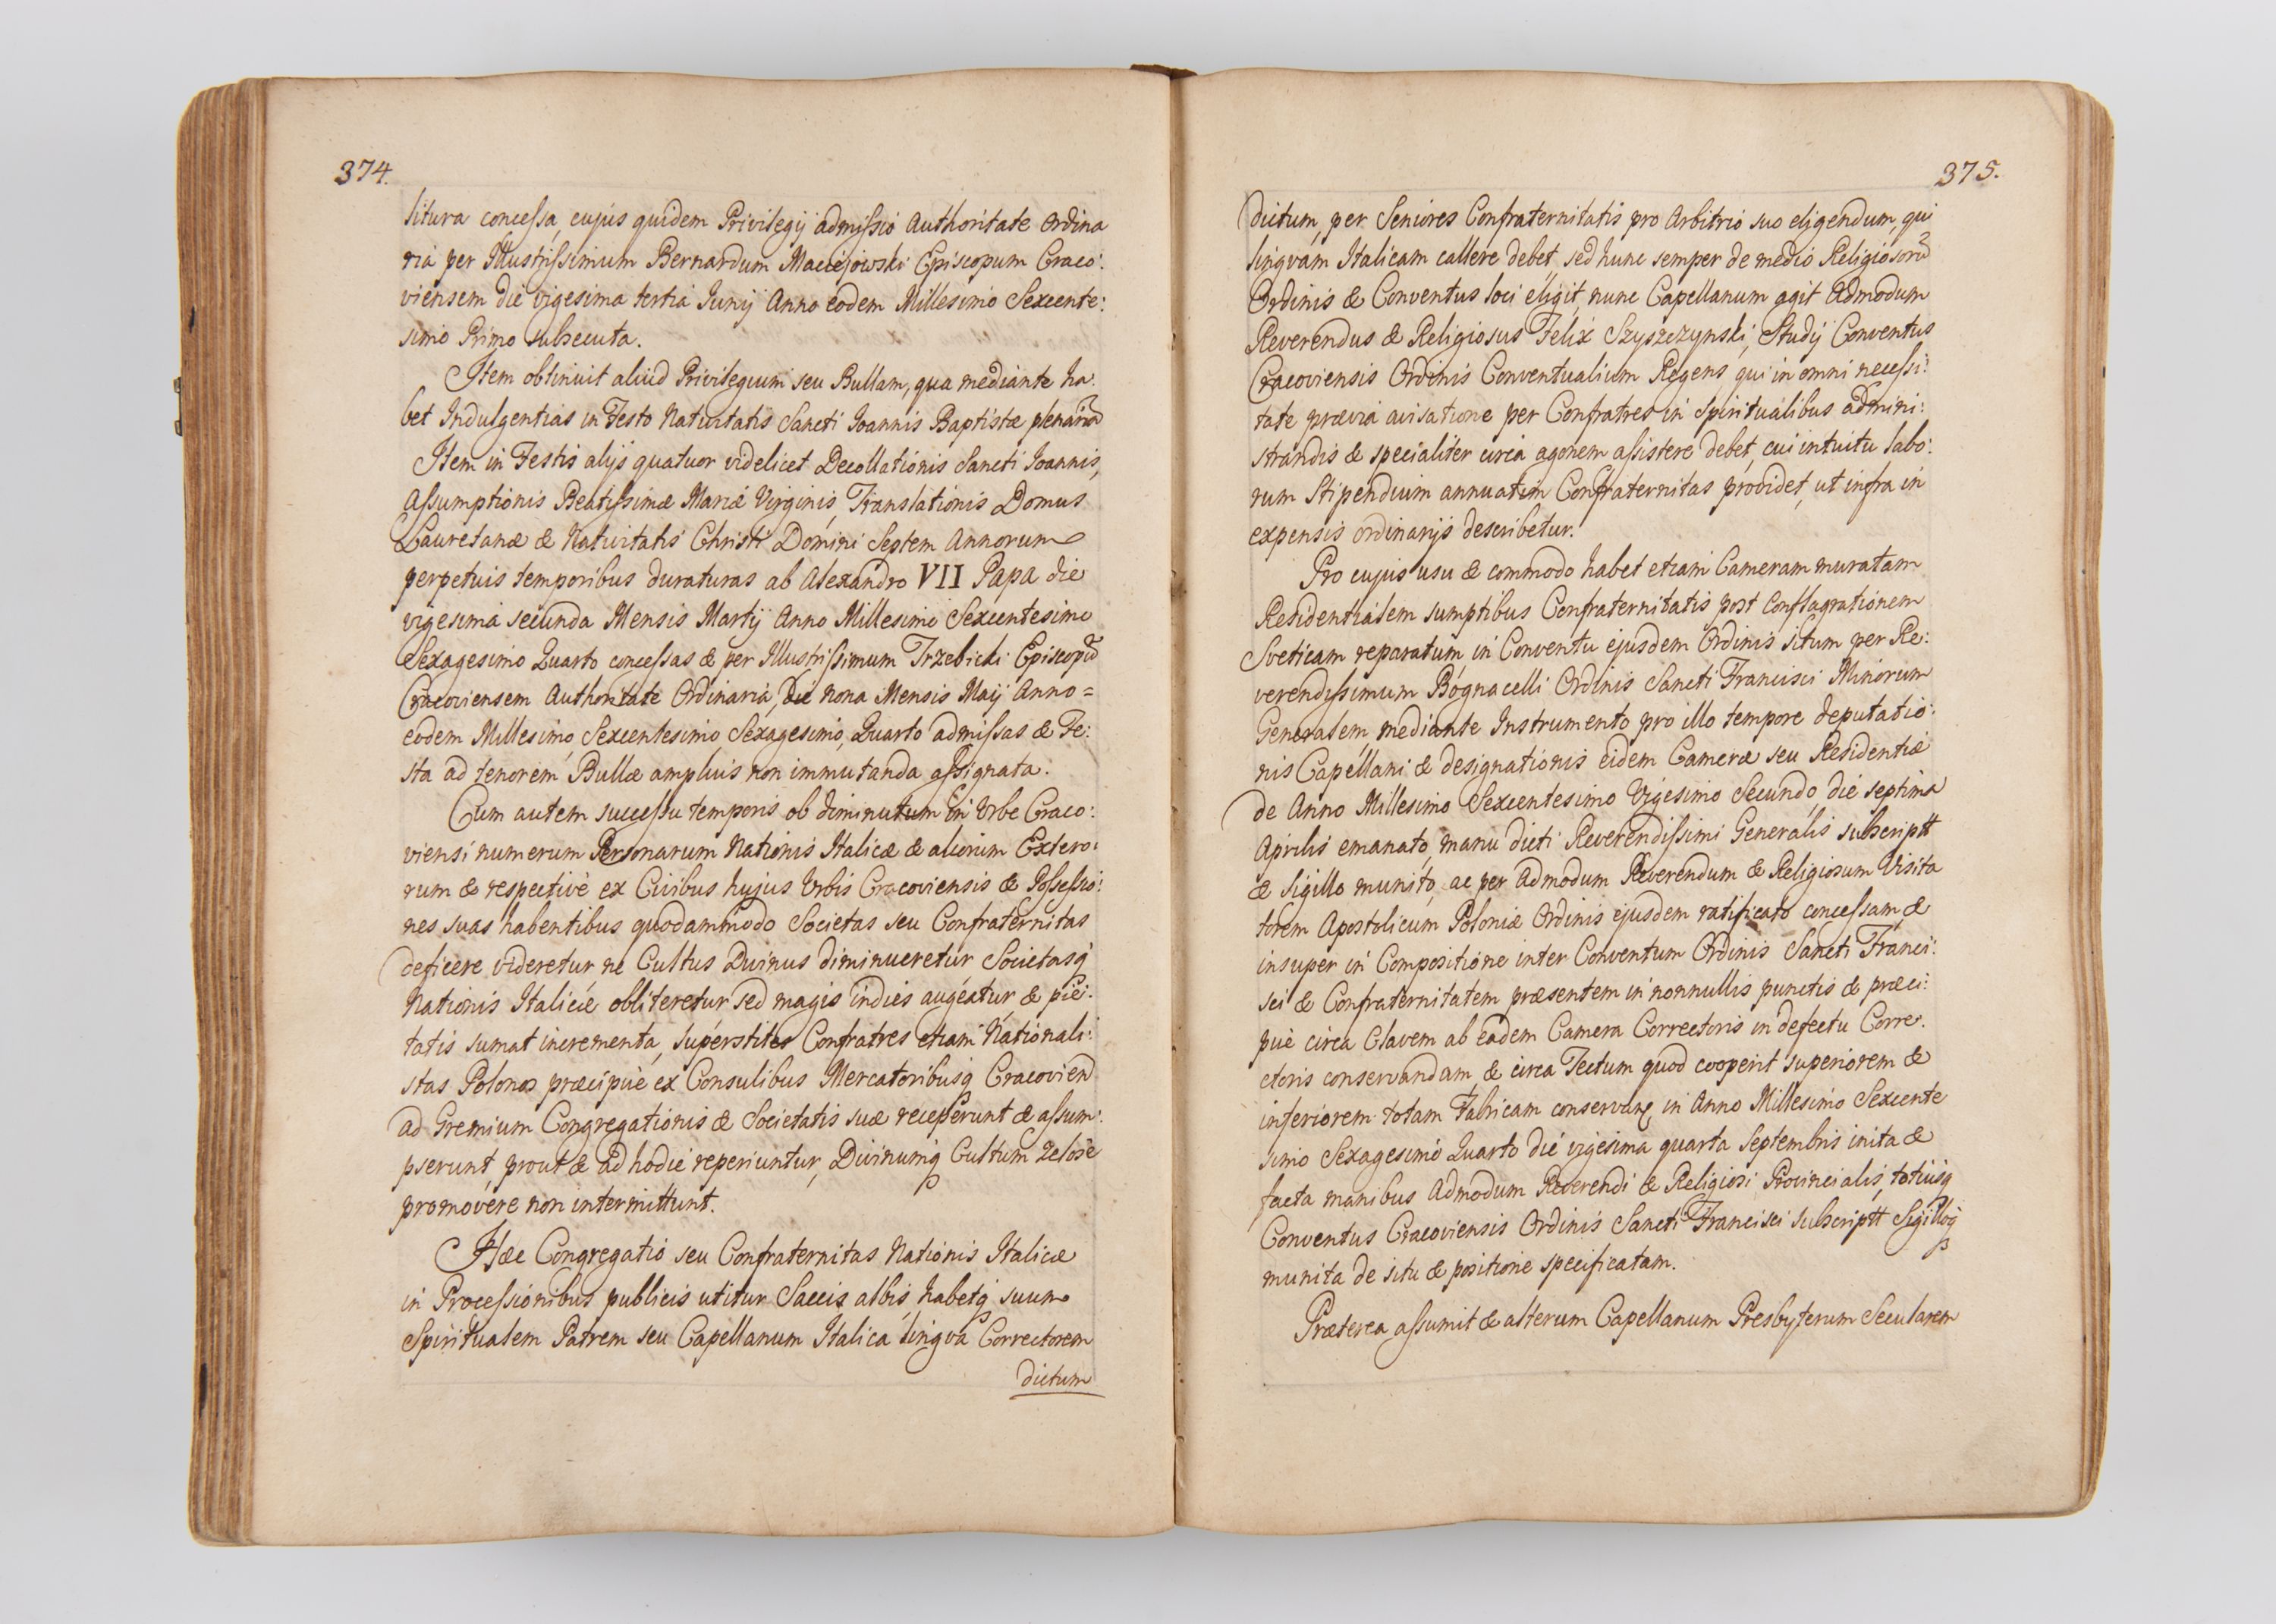 374.
litura concessa, cujus quidem Privilegij admissio Authoritate Ordina
ria per Illustrissimum Bernardum Maciejowski Episcopum Craco:
viensem die vigesima tertia Junij Anno eodem Millesimo Sexcente:
simo Primo subsecuta.
Item obtinuit aliud Privilegium seu Bullam, qua mediante ha:
bet Indulgentias in Festo Nativitatis Sancti Joannis Baptistæ plenariã
Item in Festis alijs quatuor videlicet Decollationis Sancti Joannis,
Assumptionis Beatissimæ Mariæ Virginis, Translationis Domus
Lauretanæ & Nativitatis Christi Domini Septem Annorum
perpetuis temporibus duraturas ab Alexandro VII Papa die
vigesima secunda Mensis Martij Anno Millesimo Sexcentesimo
Sexagesimo Quarto concessas & per Illustrissimum Trzebicki Episcopũ
Cracoviensem Authoritate Ordinaria, die nona Mensis Maij Anno =
eodem Millesimo, Sexcentesimo, Sexagesimo, Quarto admissas & Fe:
sta ad tenorem Bullæ amplius non immutanda assignata.
Cum autem successu temporis ob diminutum in Urbe Craco:
viensi numerum Personarum Nationis Italicæ & aliorum Extero:
rum & respective ex Civibus hujus Urbis Cracoviensis & Possessio:
nes suas habentibus quodammodo Societas seu Confraternitas
deficere videretur ne Cultus Divinus diminueretur, Societasq
Nationis Italicæ obliteretur sed magis indies augeatur & pie:
tatis sumat incrementa, superstites Confratres etiam Nationali:
stas Polonos præcipue ex Consulibus Mercatoribusq Cracovien
ad Gremium Congregationis & Societatis suæ receperunt & assum:
pserunt, prout & ad hodie reperiuntur, Divinumq Cultum zelose
promovere non intermittunt.
Hæc Congregatio seu Confraternitas Nationis Italicæ
in Processionibus publicis utitur Saccis albis, habetq suum
Spiritualem Patrem seu Capellanum Italica lingva Correctorem
dictum
375.
dictum, per Seniores Confraternitatis pro Arbitrio suo eligendum, qui
lingvam Italicam callere debet, sed hunc semper de medio Religiosorũ
Ordinis & Conventus loci eligit, nunc Capellanum agit Admodum
Reverendus & Religiosus Felix Szyszczynski, Studij Conventus
Cracoviensis Ordinis Conventualium Regens, qui in omni necessi:
tate prævia avisatione per Confratres in Spiritualibus admini:
strandis & specialiter circa agonem assistere debet, cui intuitu labo:
rum Stipendium annuatim Confraternitas providet, ut infra in
expensis ordinarijs describetur.
Pro cujus usu & commodo habet etiam Cameram muratam
Residentialem sumptibus Confraternitatis post Conflagrationem
Sveticam reparatum in Conventu ejusdem Ordinis situm per Re:
verendissimum Bognacelli Ordinis Sancti Francisci Minorum
Generalem, mediante Instrumento pro illo tempore deputatio:
nis Capellani & designationis eidem Cameræ seu Residentiæ
de Anno Millesimo Sexcentesimo Vigesimo Secundo, die septima
Aprilis emanato, manu dicti Reverendissimi Generalis subscriptt
& Sigillo munito, ac per Admodum Reverendum & Religiosum Visita
torem Apostolicum Poloniæ Ordinis ejusdem ratificato concessam, &
insuper in Compositione inter Conventum Ordinis Sancti Franci:
sci & Confraternitatem præsentem in nonnullis punctis & præci:
pue circa Clavem ab eadem Camera Correctoris in defectu Corre:
ctoris conservandam, & circa Tectum quod cooperit superiorem &
inferiorem totam Fabricam conservare, in Anno Millesimo Sexcente
simo Sexagesimo Quarto die vigesima quarta Septembris inita &
facta manibus Admodum Reverendi & Religiosi Provincialis, totiusq
Conventus Cracoviensis Ordinis Sancti Francisci subscriptt Sigilloq
munita de situ & positione specificatam.
Præterea assumit & alterum Capellanum Presbyterum Secularem